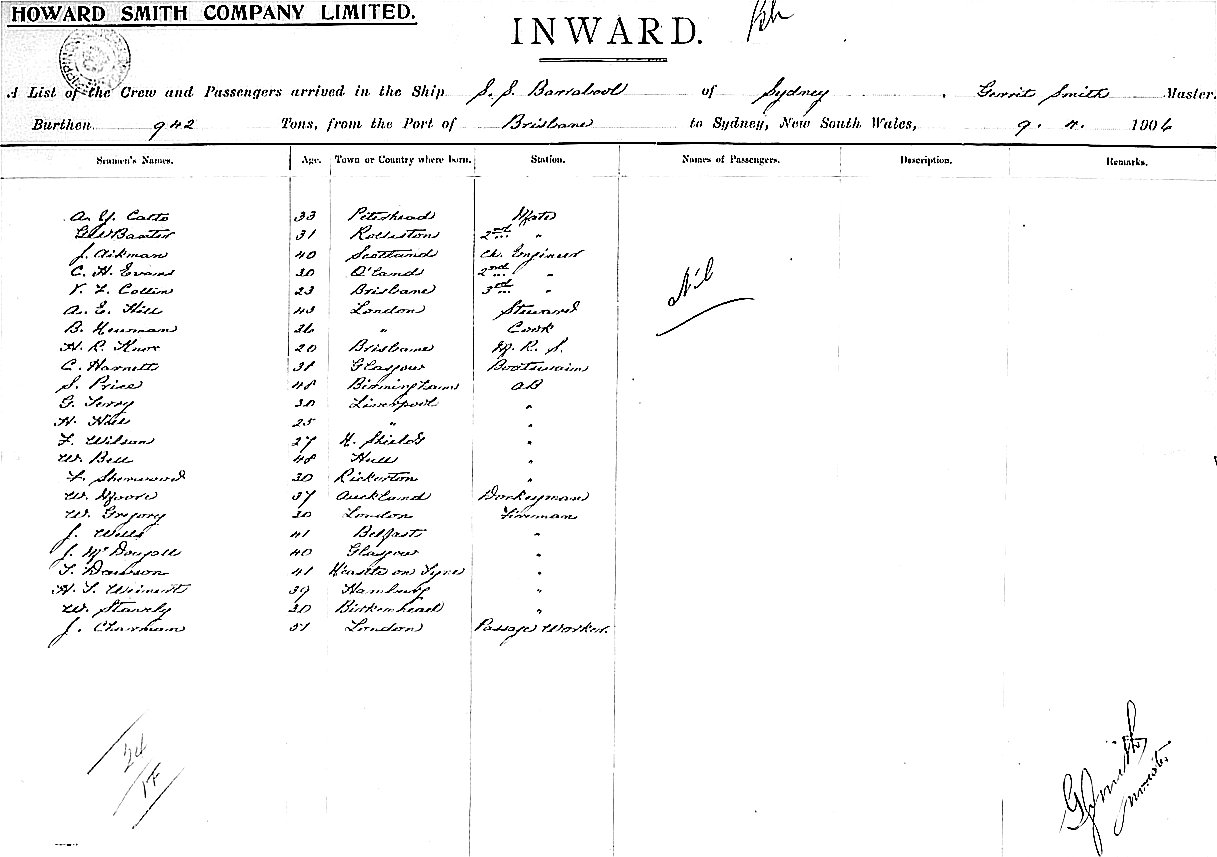 HOWARD SMITH COMPANY LIMITED.
INWARD.
A List of the Crew and Passengers arrived in the Ship S. S. Barrabool of Sydney, Gerrit Smith Master.
Burthen 942 Tons, from the Port of Brisbane to Sydney, New South Wales, 9. 4. 1906
Seamen's Names. Age. Town or Country where born. Station. Names of Passengers. Description. Remarks.
A. Y. Catto 33 Peterhead Mate
Baxter 31 Rolleston 2nd "
J. Aikman 40 Scotland Ch. Engineer
C. H. Evans 30 Q'land 2nd "
Cottin 23 Brisbane 3rd "
A. E. Hill 43 London Steward
B. Heuman 36 " Cook
H. R. Knox 20 Brisbane M. R. S.
C. Harnett 38 Glasgow Boatswain
S. Price 48 Birmingham AB
G. Terry 30 Liverpool "
H. Hall 25 " "
F. Wilson 27 N. Shields "
W. Bell 48 Hull "
F. Sherwood 30 Rickerton "
W. Moore 37 Auckland Donkeyman
W. Gregory 30 London Fireman
J. Wells 41 Belfast "
J. McDougall 40 Glasgow "
T. Dawson 41 Ncastle on Tyne "
H. T. 39 Hamburg "
W. Stavely 30 Birkenhead "
J. Charman 51 London Passage Worker.
Nil
24
G Smith
Master